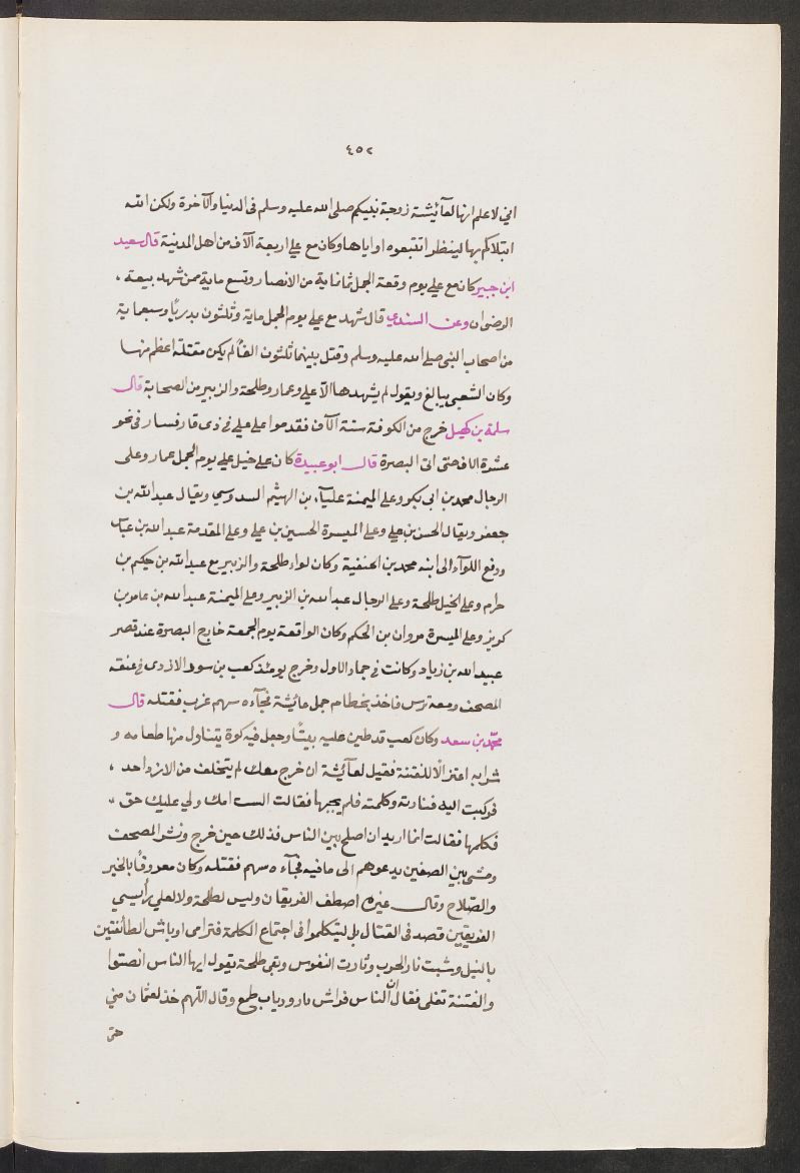 ٤٥٢
اني لاعلم انها لعآئيشة زوجة نبيكم صلى الله عليه وسلم في الدنيا والآخرة ولكن الله
ابتلاكم بها لينظر اتتبعوه او اياها وكان مع علي اربعة الآف من اهل المدنية قال سعيد
ابن جبير كان مع علي يوم وقعة الجمل ثمانماية من الانصار وتسع ماية ممن شهد بيعة
الرضوان وعن السندي قال شهد مع علي يوم الجمل ماية وثلثون بدريًا وسبعماية
من اصحاب النبى صلى الله عليه وسلم وقتل بينهما ثلثون الفًا لم يكن مقتلة اعظم منها
وكان الشعبى يبالغ ويقول لم يشهدها الاّ علي وعمار وطلحة والزبير من الصحابة قال
سلمة بن كهيل خرج من الكوفة ستة الآف فقدموا على علي في ذى قار فسار في نحو
عشرة الاف حتى اتى البصرة قال ابو عبيدة كان على خيل علي يوم الجمل عمار وعلى
الرجال محمد بن ابى بكر وعلى الميمنة علبآء بن الهيثم السدوسي ويقال عبد الله بن
جعفر ويقال الحسن بن علي وعلى الميسرة الحسين بن علي وعلى المقدمة عبد الله بن عباس
ودفع اللوآء الى ابنه محمد بن الحنفية وكان لواء طلحة والزبير مع عبد الله بن حكيم بن
حزام وعلى الخيل طلحة وعلى الرجال عبد الله بن الزبير وعلى الميمنة عبد الله بن عامر بن
كريز وعلى الميسرة مروان بن الحكم وكان الواقعة يوم الجمعة خارج البصرة عند قصر
عبيد الله بن زياد وكانت في جماد الاول وخرج يومئذ كعب بن سور الازدى في عنقه
المصحف ومعه ترس فاخذ بخطام جمل عائيشة فجآءه سهم غرب فقتله قال
محمد بن سعد وكان كعب قد طين عليه بيتًا وجعل فيه كوة يتناول منها طعامه و
شرابه اعتزالًا للفتنة فقيل لعآئيشة ان خرج معك لم يتخلف من الازد احد
فركبت اليه فنادته وكلمته فلم يجبها فقالت الست امك ولي عليك حق
فكلمها فقالت انما اريد ان اصلح بين الناس فذلك حين خرج ونشر المصحف
ومشى بين الصفين يدعوهم الى ما فيه فجآءه سهم فقتله وكان معروفًا بالخير
والصّلاح وقال غيره اصطف الفريقان وليس لطلحة ولا لعلي رأيسي
الفريقين قصد في القتال بل ليتكلموا في اجتماع الكلمة فترامى اوباش الطائفتين
بالنبل وشبت نار الحرب وثارت النفوس وبقى طلحة يقول ايها الناس انصتوا
والفتنة تغلى فقال ان الناس فراش نار وذياب طمع وقال اللّهم خذ لعثمان مني
حتى